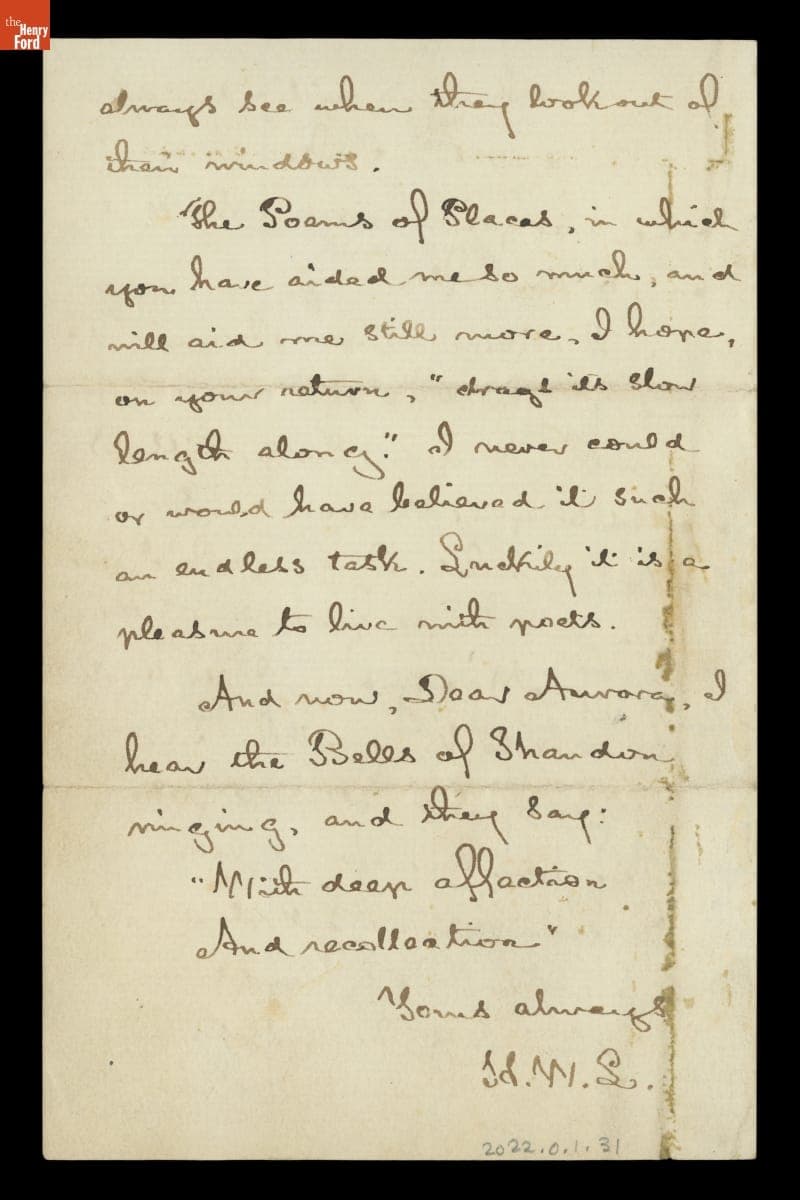 the
Henry
Ford
always see when they look out of
their windows.
The Poems of Places, in which
you have aided me so much, and
will aid me still more, I hope,
on your return, "drags its slow
length along." I never could
or would have believed it such
an endless task. Luckily it is a
pleasure to live with poets.
And now, Dear Aurora, I
hear the Bells of Shandon
ringing, and they say:
"With deep affection
And recollection"
Yours always
H. W. L.
2022.0.1.31